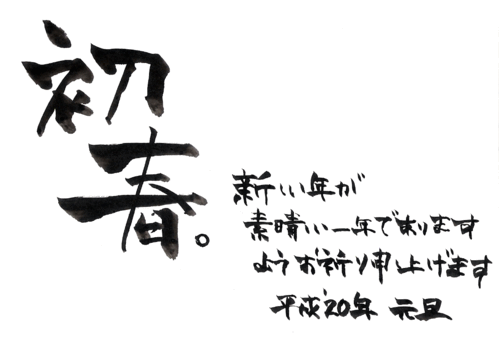 初春。
新しい年が
素晴しい一年であります
ようお祈り申し上げます
平成20年 元旦